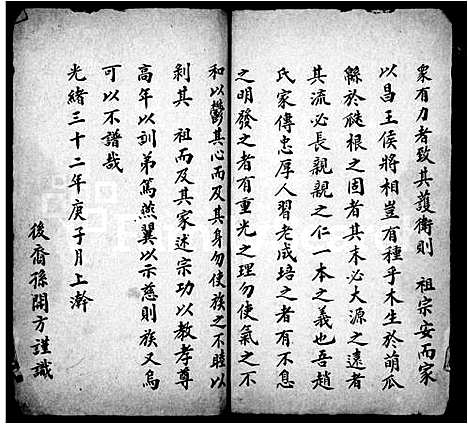 眾有力者致其護衛則　祖宗安而家
以昌王侯將相豈有種乎木生於萌瓜
緜於瓞根之固者其末必大源之遠者
其流必長親親之仁一本之義也吾趙
氏家傳忠厚人習老成培之者有不息
之明發之者有重光之理勿使氣之不
和以鬱其心而及其身勿使族之不睦以
剝其　祖而及其家述宗功以教孝尊
高年以訓弟篤燕翼以示慈則族又烏
可以不譜哉
光緒三十二年庚子月上澣
後裔孫開方謹識